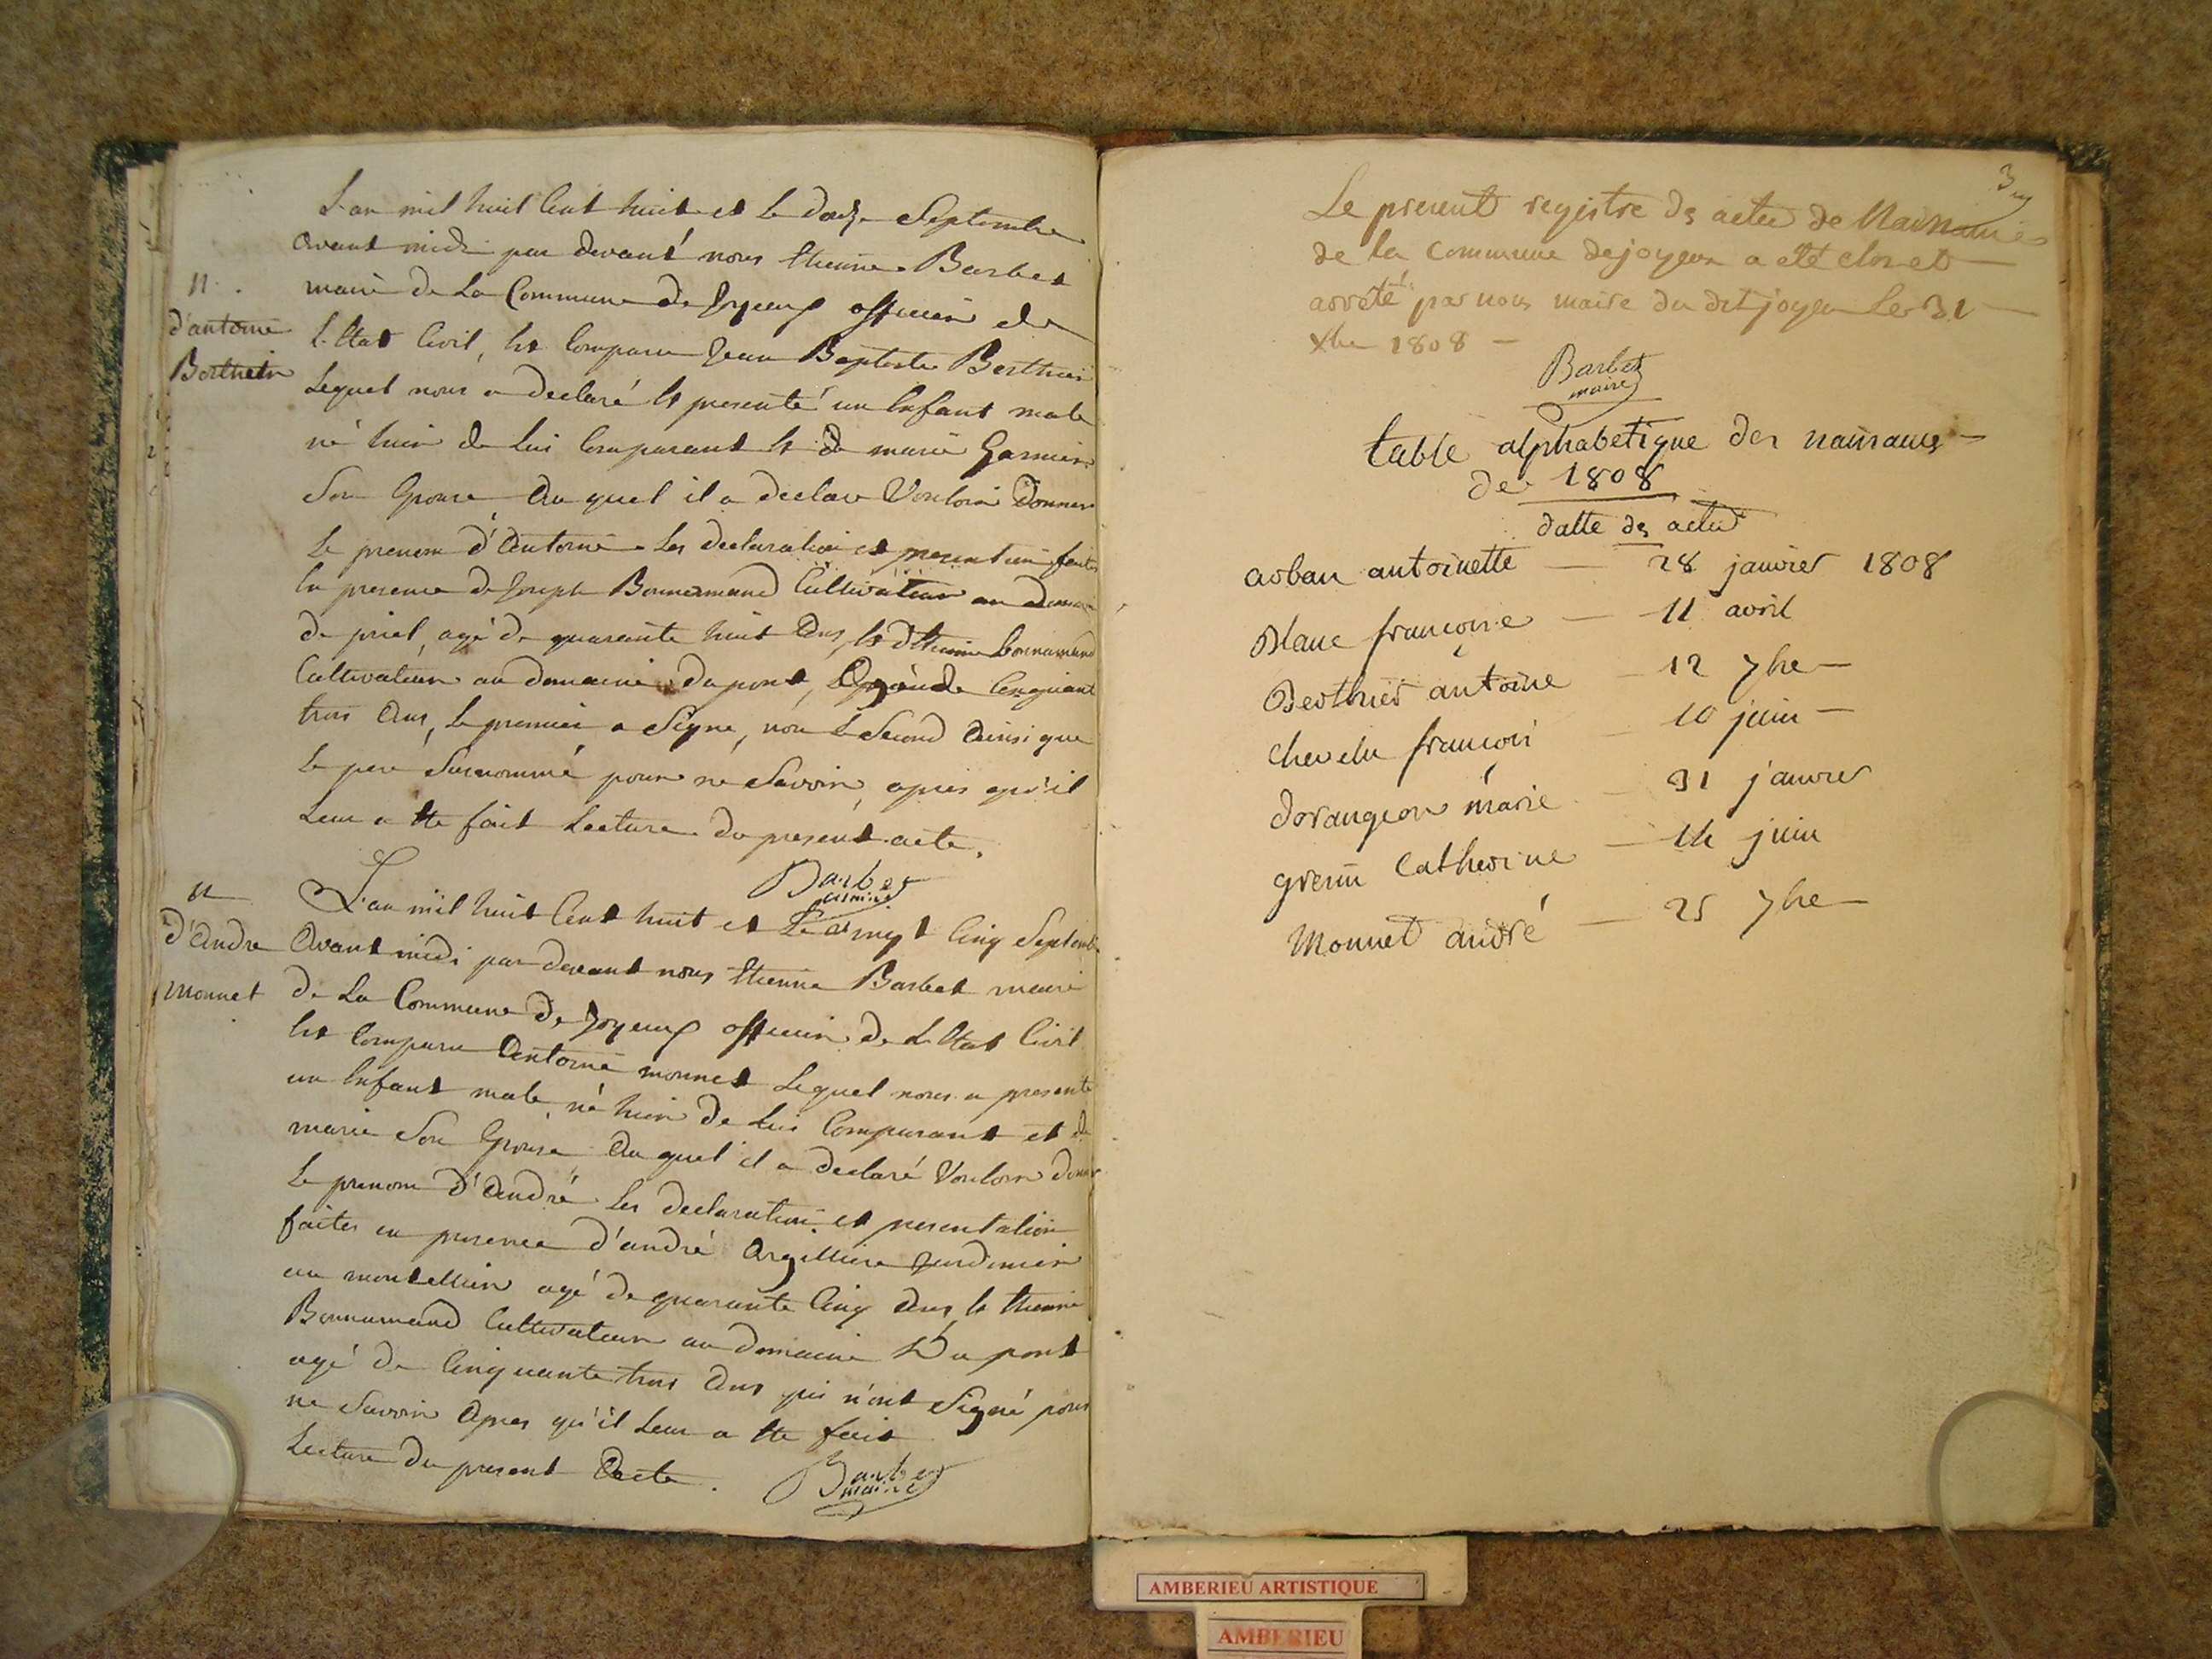 L'an mil huit Cent huit et le douze Septembre
avant midi par devant nous Etienne Barbet
maire de La Commune de Joyeux officier de
L'Etat Civil, Est Comparu Jean Baptiste Berthier
Lequel nous a declaré Et presenté un Enfant male
né hier de Lui Comparant Et de marie Garnier
Son Epouse Au quel il a declaré Vouloir Donner
Le prenom d'Antoine Les declaration et presentation faites
En presence de Joseph Bonnamand Cultivateur au domaine
de priel, agé de quarante huit Ans, Et d'Etienne Bonnamand
Cultivateur au domaine du pont, Agé de Cinquante
trois Ans, Le premier a Signé, non Le Second Ainsi que
Le pere Susnommé pour ne Savoir, apres qu'il
Leur a Ete fait Lecture du present acte.
Barbet
maire
N.
d'antoine
Berthier
L'an mil huit Cent huit et Le vingt Cinq Septembre
Avant midi par devant nous Etienne Barbet maire
de La Commune de Joyeux officier de L'Etat Civil
Est Comparu Antoine monnet Lequel nous a presenté
un Enfant male, né hier de Lui Comparant et de
marie Son Epouse Au quel il a declaré Vouloir donner
Le prenom d'André Les declaration et presentation
faites en presence d'andré Argillier Jardinier
au montellier agé de quarante Cinq Ans, Et Etienne
Bonnamand Cultivateur au Domaine Du pont
agé de Cinquante trois Ans qui n'ont Signé pour
ne Savoir Apres qu'il Leur a Ete fait
Lecture du present Acte.
Barbet
maire
N
d'Andre
monnet
3
Le present registre des actes de Naissances
de la commune de joyeux a été clos et
arrêté par nous maire du dit joyeux Le 31
Xbre 1808
Barbet
maire
table alphabetique des naissances
de 1808
datte des actes
arban antoinette — 28 janvier 1808
Blanc françoise — 11 avril
Berthier antoine — 12 7bre
chevelu françois — 10 juin
dorangeon marie — 31 janvier
catherine — 14 juin
Monnet andré — 25 7bre
AMBERIEU ARTISTIQUE
AMBERIEU